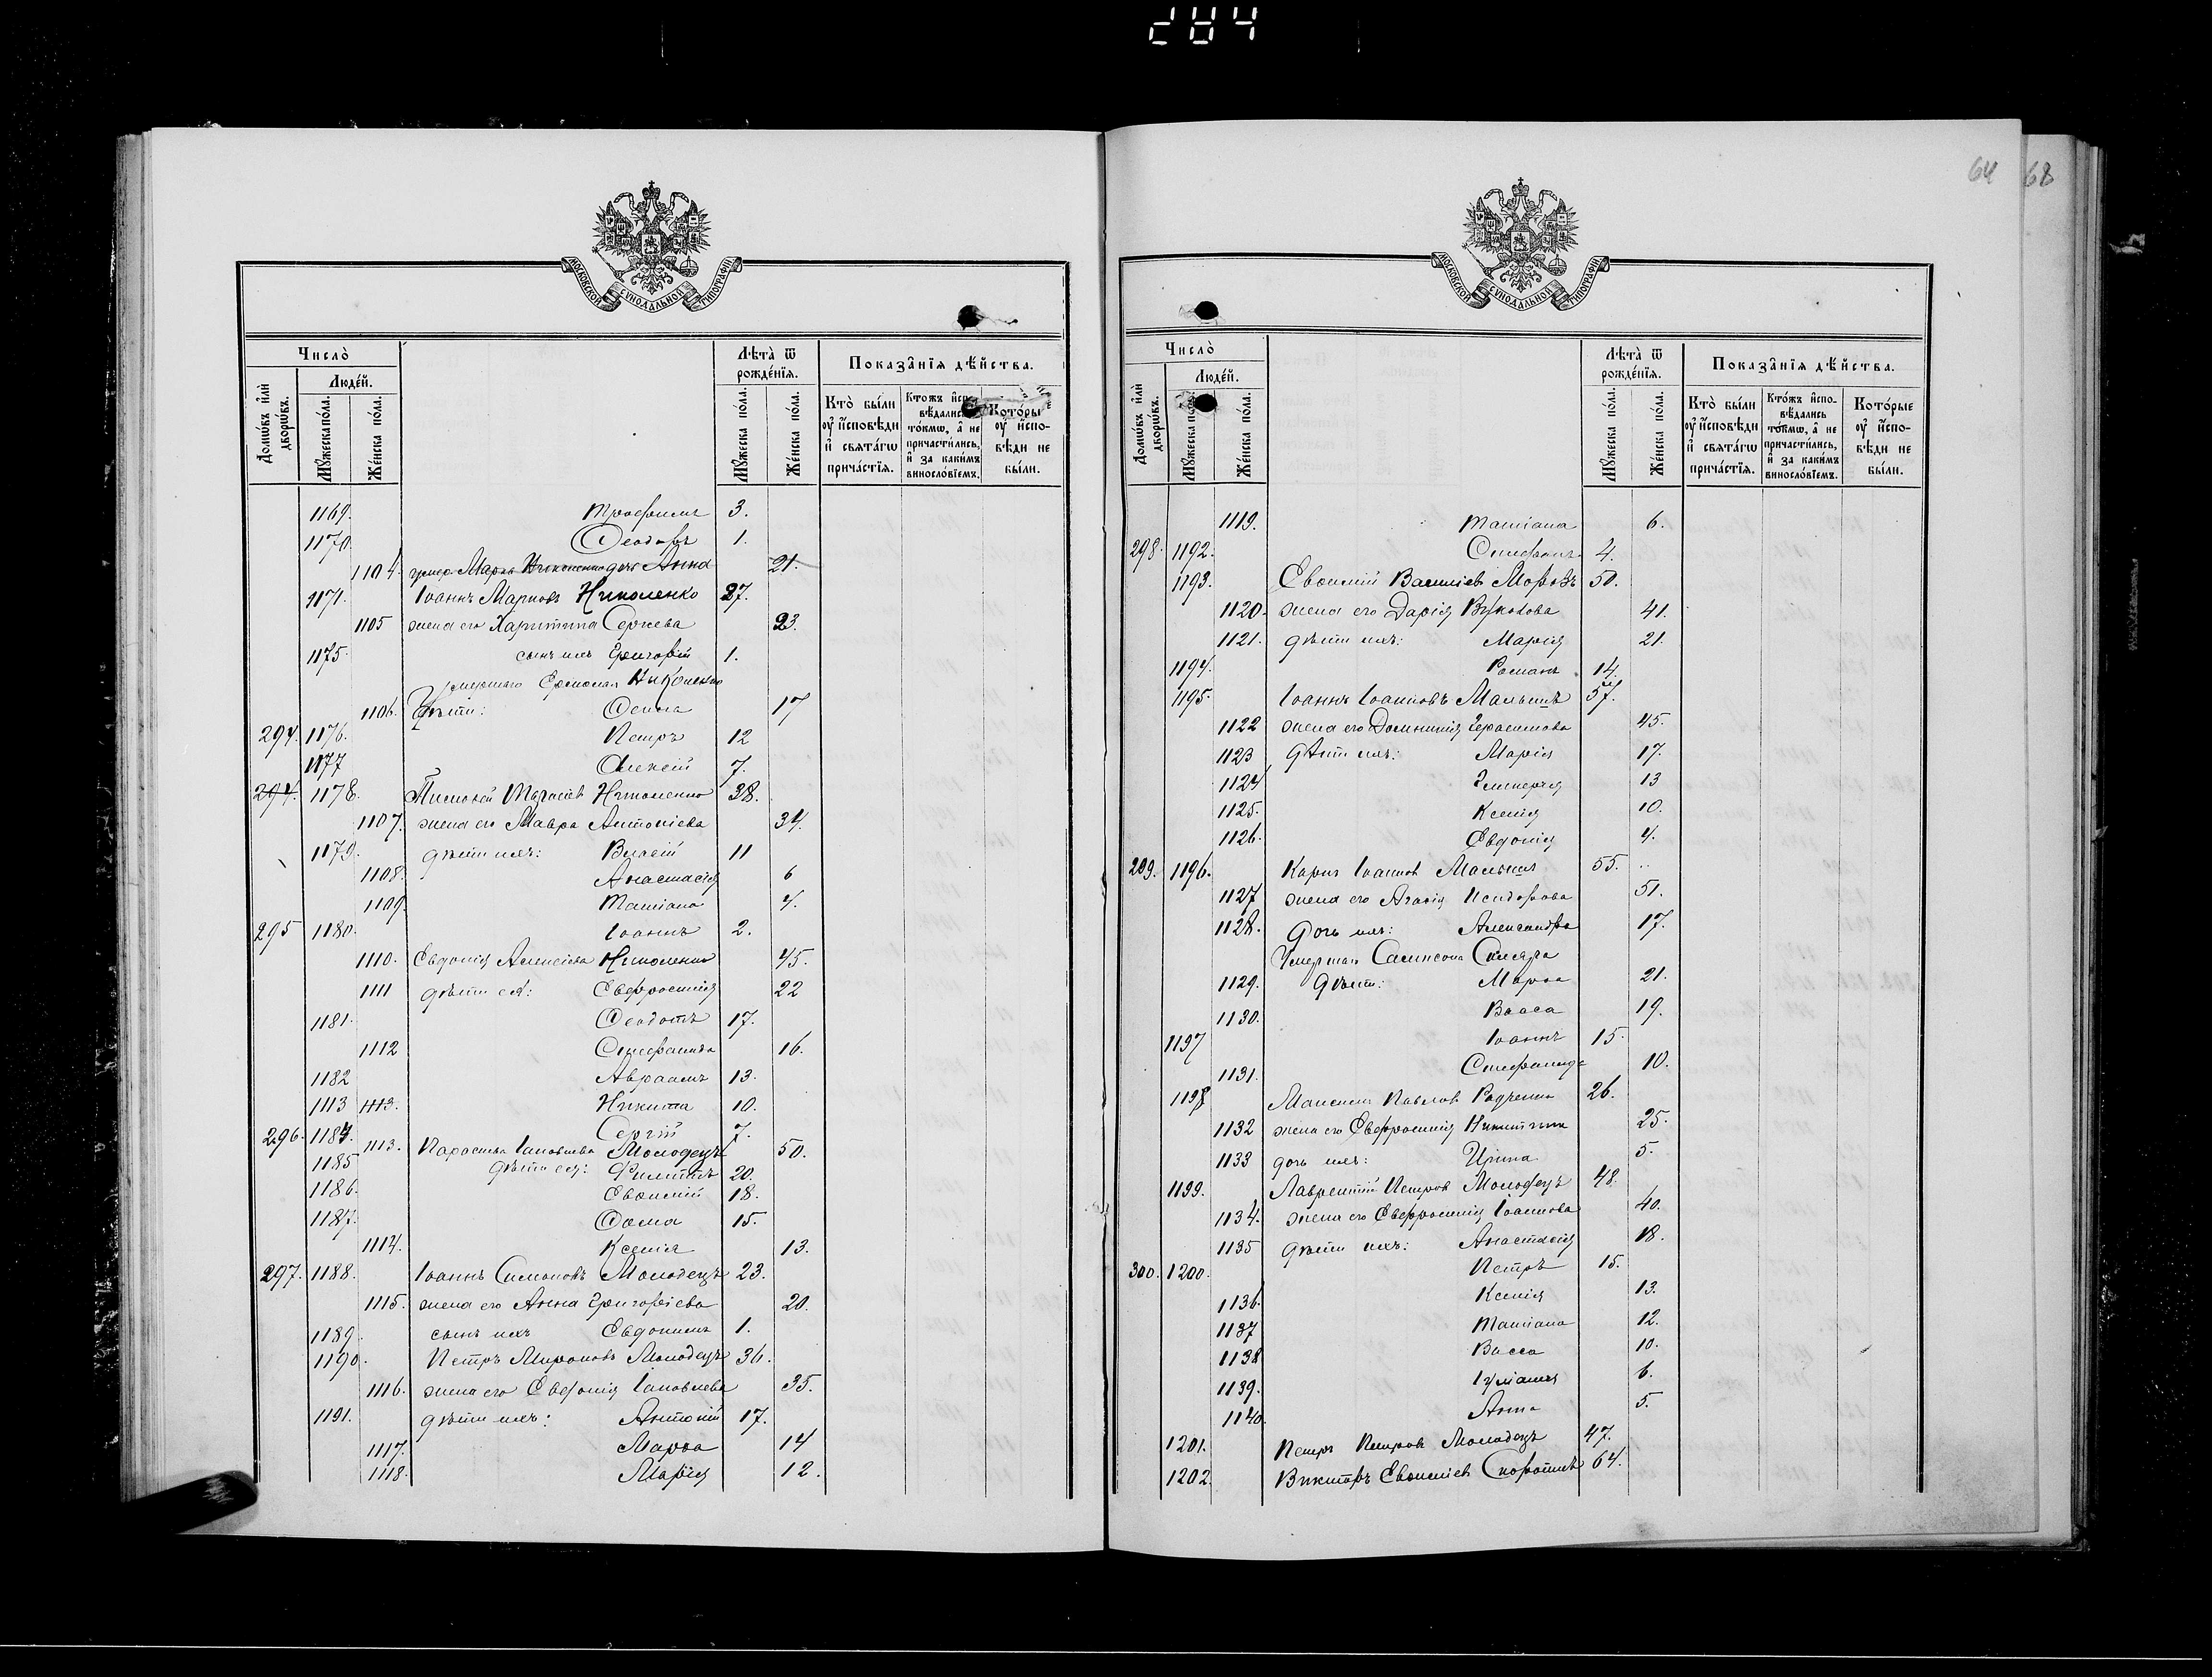 284
64 68
МОСКОВСКОЙ СУНОДАЛЬНОЙ ТИПОГРАФІИ
Число̀
Лѣта̀ ѿ рожде́нїѧ.
Показа̑нїѧ дѣ́йства.
Домѡ́въ и҆лѝ дворѡ́въ.
Люде́й.
Мꙋ́жеска по́ла.
Же́нска по́ла.
Мꙋ́жеска по́ла.
Же́нска по́ла.
Кто̀ бы́ли ᲂу҆ и҆́сповѣди и҆ свѧта́гѡ прича́стїѧ.
Которы
ᲂу҆ и҆́спо-вѣди не бы́ли.
1169. Трофимъ 3.
1170 Ѳеодоръ 1.
1104. дочь Анна 21.
1171. Іоаннъ Марковъ Николенко 27.
1105 жена его Харитина Сергіева 23.
1175. сынъ ихъ Григорій 1.
умершаго Ермолая Николенко
1106. дѣти: 17
294. 1176. Петръ 12
1177 Алексій 7.
294. 1178. Тимоѳей Николенко 38.
1107. жена его Мавра Антоніева 34.
1179. дѣти ихъ: Власій 11
1108. Анастасія 6
1109. Татіана 4.
295 1180. Іоаннъ 2.
1110. Евдокія Алексіева Николенко 45.
1111 дѣти ея: Евфросинія 22
1181. Ѳеодотъ 17.
1112 Стефанида 16.
1182 Авраамъ 13.
1113 1113. Никита 10.
296. 1184. Сергій 7.
1113. Параскева Іаковлева Молодецъ 50.
1185 дѣти ея: Филиппъ 20.
1186. Евѳимій 18.
1187. Ѳома 15.
1114. Ксенія 13.
297. 1188. Іоаннъ Симоновъ Молодецъ 23.
1115. жена его Анна Григоріева 20.
1189 сынъ ихъ Евдокимъ 1.
1190. Петръ Мироновъ Молодецъ 36.
1116. жена его Евдокія Іаковлева 35.
1191. дѣти ихъ: Антоній 17.
1117. Марѳа 14
1118. Марія 12.
Число̀
Лѣта̀ ѿ рожде́нїѧ.
Показа̑нїѧ дѣ́йства.
Домѡ́въ и҆лѝ дворѡ́въ.
Люде́й.
Мꙋ́жеска по́ла.
Же́нска по́ла.
Мꙋ́жеска по́ла.
Же́нска по́ла.
Кто̀ бы́ли ᲂу҆ и҆́сповѣди и҆ свѧта́гѡ прича́стїѧ.
Кто́жъ и҆спо-вѣдались то́кмѡ, а҆ не причасти́лись, и҆ за каки́мъ виносло́вїемъ.
Кото́рые ᲂу҆ и҆́спо-вѣди не бы́ли.
1119. Татіана 6.
298. 1192. Стефанъ 4.
1193. Евѳимій Василіев Морозъ 50.
1120. жена его Дарія 41.
1121. дѣти ихъ: Марія 21.
1194. Романъ 14.
1195. Іоаннъ Іоанновъ Малышъ 57.
1122 жена его Домникія Герасимова 45.
1123 дѣти ихъ: Марія 17.
1124 Гликерія 13
1125. Ксенія 10.
1126. Евдокія 4.
209. 1196. Карпъ Іоаннов Малышъ 55.
1127 жена его Агаѳія Исидорова 51.
1128. дочь ихъ: Александра 17.
Умершаго Сампсона
1129. дѣти: Марѳа 21.
1130. Васса 19.
1197 Іоаннъ 15.
1131. Стефанида 10.
1198 Максимъ Павлов Радченко 26.
1132 жена его Евфросинія Никитина 25.
1133 дочь ихъ: Ирина 5.
1199. Лаврентій Петров Молодецъ 48.
1134. жена его Евфросинія Іоаннова 40.
1135 дѣти ихъ: Анастасія 18.
300. 1200. Петръ 15.
1136. Ксенія 13.
1137 Татіана 12.
1138 Васса 10.
1139. Іуліанія 6.
1140. Анна 5.
1201. Петръ Петров Молодецъ 47.
1202. Викторъ Евѳиміев 64.